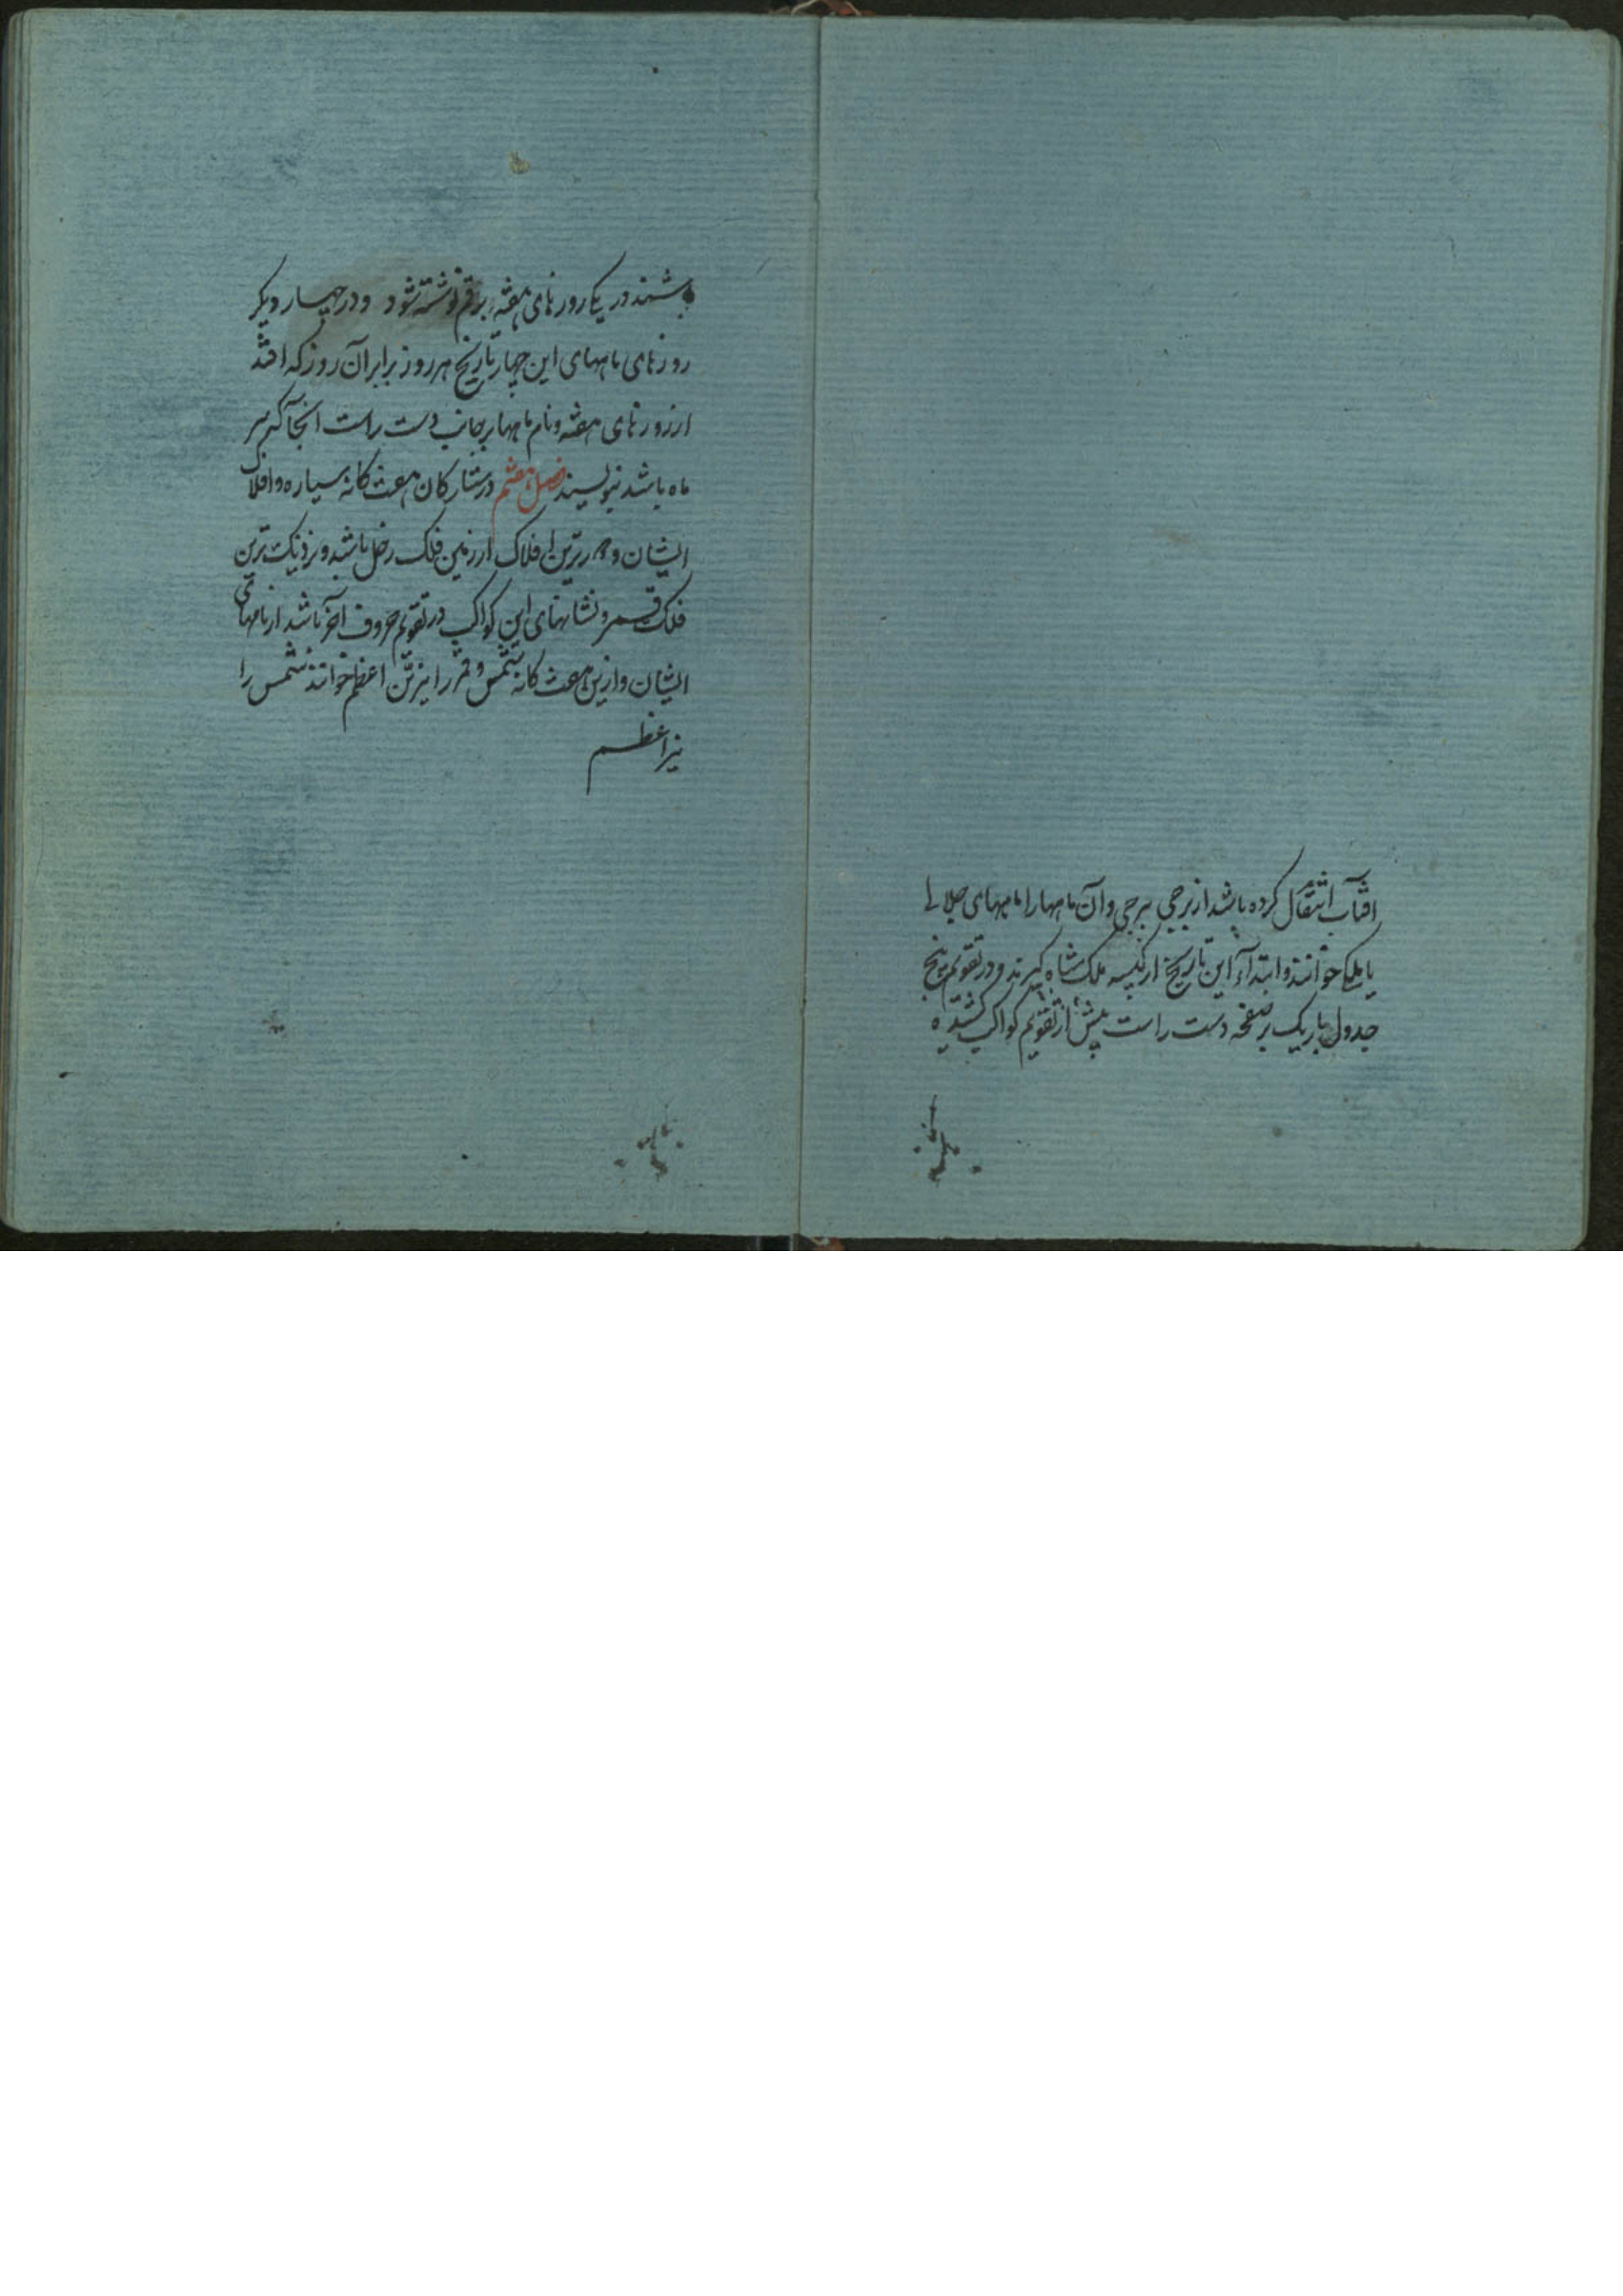 افتاب انتقال کرده باشد از برجی ببرجی و آن ماهها را ماههای جلالی
یا ملکی خوانند و ابتداء این تاریخ از کبیسه ملک شاه گیرند و در تقویم پنج
جدول باریک بر صفحه دست راست پیش از تقویم کواکب کشیده
باشند در یکی روزهای هفته برقم نوشته شود و در چهار دیگر
روزهای ماههای این چهار تاریخ هر روز برابر آن روز که افتد
از روزهای هفته و نام ماهها بر جانب دست راست انجا که سر
ماه باشد بنویسند فصل هفتم در ستارکان هفت کانه سیاره و افلاک
ایشان و دورترین افلاک از زمین فلک زحل باشد و نزدیک ترین
فلک قمر و نشانهای این کواکب در تقویم حروف آخر باشد از نامهای
ایشان و ازین هفت کانه شمس و قمر را نیرین اعظم خوانند شمس را
نیر اعظم